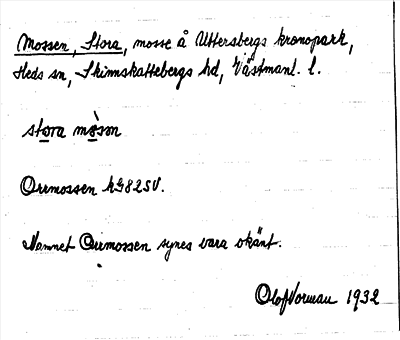 Mossen, Stora, mosse å Uttersbergs kronopark,
Heds sn, Skinnskattebergs hd, Västmanl. l.
stora mòsən
Orrmossen hG82SV.
Namnet Orrmossen synes vara okänt.
Olof Norman 1932